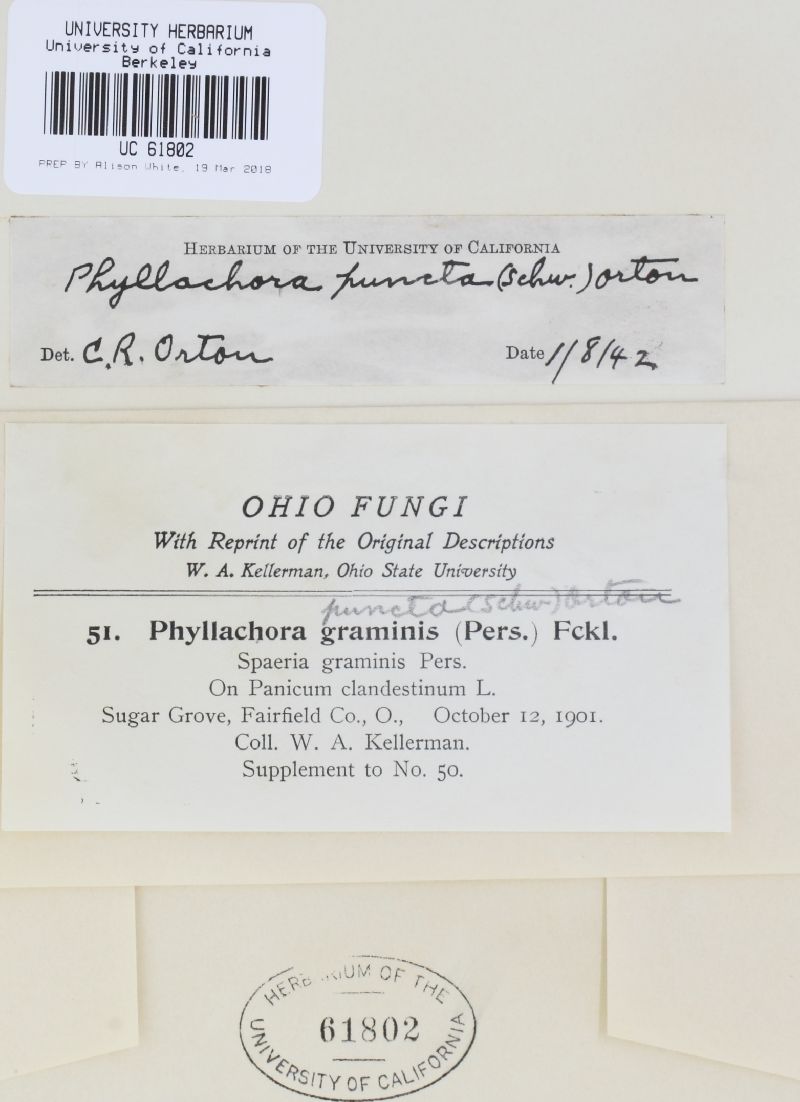 UNIVERSITY HERBARIUM
University of California
Berkeley
UC 61802
PREP BY Alison White, 19 Mar 2018
HERBARIUM OF THE UNIVERSITY OF CALIFORNIA
Phyllachora puncta (Schw.) Orton
Det. C.R. Orton
Date 1/8/42
OHIO FUNGI
With Reprint of the Original Descriptions
W. A. Kellerman, Ohio State University
puncta (Schw) Orton
51. Phyllachora graminis (Pers.) Fckl.
Spaeria graminis Pers.
On Panicum clandestinum L.
Sugar Grove, Fairfield Co., O., October 12, 1901.
Coll. W. A. Kellerman.
Supplement to No. 50.
HERBARIUM OF THE
61802
UNIVERSITY OF CALIFORNIA